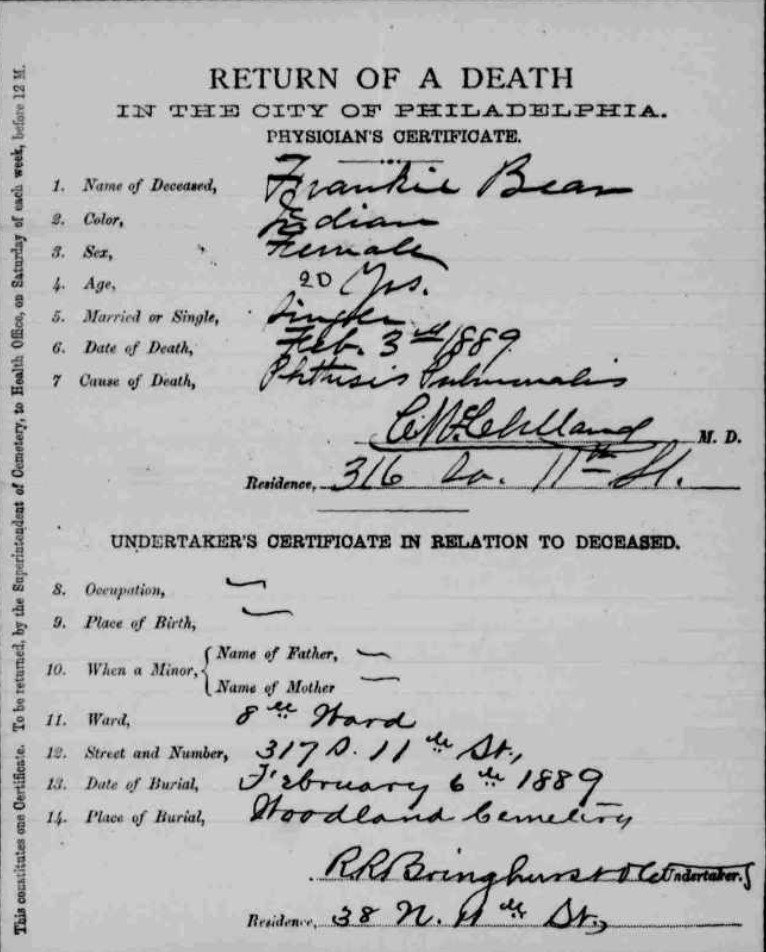 This constitutes one Certificate. To be returned, by the Superintendent of Cemetery, to Health Office, on Saturday of each week, before 12 M.
RETURN OF A DEATH
IN THE CITY OF PHILADELPHIA.
PHYSICIAN'S CERTIFICATE.
1. Name of Deceased, Frankie Bear
2. Color, Indian
3. Sex, Female
4. Age, 20 Yrs.
5. Married or Single, Single
6. Date of Death, Feb. 3rd 1889
7 Cause of Death, Phthisis Pulmonalis
M. D.
Residence, 316 So. 11th St.
UNDERTAKER'S CERTIFICATE IN RELATION TO DECEASED.
8. Occupation, —
9. Place of Birth, —
10. When a Minor, { Name of Father, —
Name of Mother —
11. Ward, 8th Ward
12. Street and Number, 317 S. 11th St.,
13. Date of Burial, February 6th 1889
14. Place of Burial, Woodland Cemetery
R R Bringhurst & Co Undertaker.
Residence, 38 N. 11th St,